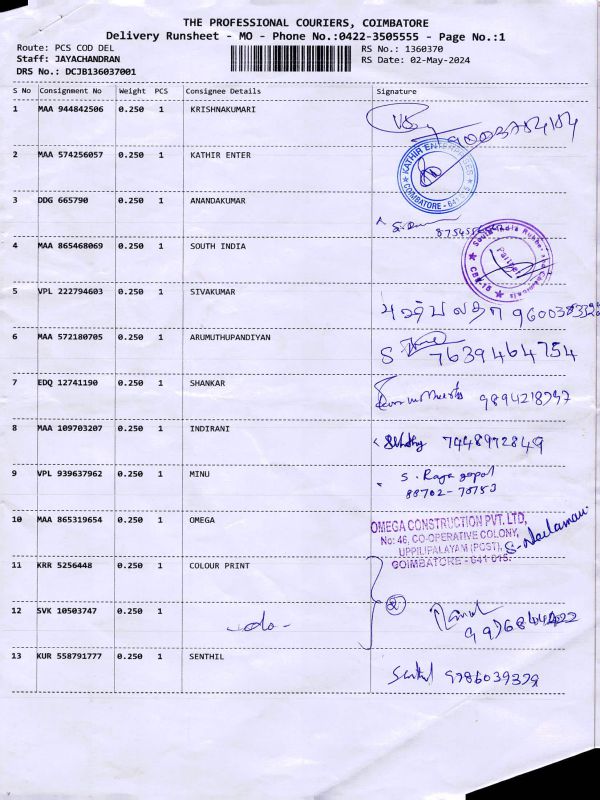 THE PROFESSIONAL COURIERS, COIMBATORE
Delivery Runsheet - MO - Phone No.:0422-3505555 - Page No.:1
Route: PCS COD DEL RS No.: 1360370
Staff: JAYACHANDRAN RS Date: 02-May-2024
DRS No.: DCJB136037001
S No Consignment No Weight PCS Consignee Details Signature
1 MAA 944842506 0.250 1 KRISHNAKUMARI
2 MAA 574256057 0.250 1 KATHIR ENTER
KATHIR ENTERPRISES
COIMBATORE - 641
3 DDG 665790 0.250 1 ANANDAKUMAR
4 MAA 865468069 0.250 1 SOUTH INDIA
South India Rubber
Partner
CBE-18
5 VPL 222794603 0.250 1 SIVAKUMAR
6 MAA 572180705 0.250 1 ARUMUTHUPANDIYAN
7639464754
7 EDQ 12741190 0.250 1 SHANKAR
8 MAA 109703207 0.250 1 INDIRANI
7448972849
9 VPL 939637962 0.250 1 MINU S. Raja gopal
88702-70753
10 MAA 865319654 0.250 1 OMEGA OMEGA CONSTRUCTION PVT. LTD,
No: 46, CO-OPERATIVE COLONY,
UPPILIPALAYAM (POST),
COIMBATORE - 641 015.
11 KRR 5256448 0.250 1 COLOUR PRINT
12 SVK 10503747 0.250 1 -do- 2
13 KUR 558791777 0.250 1 SENTHIL Senthil